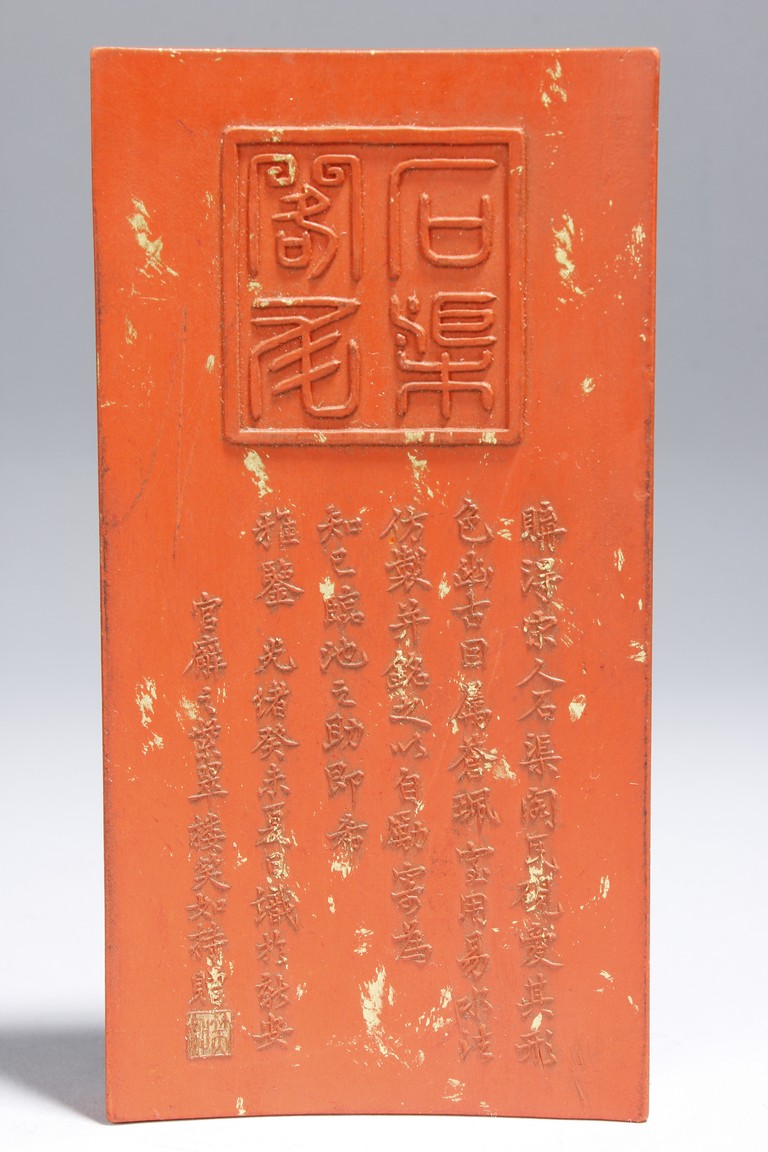 石渠
閣瓦
購得宋人石渠閣瓦硯愛其形
色幽古屬蒼珮室用易法
仿製并銘之以自勵寄為
知己臨池之助即希
雅鑒 光緒癸未夏日識於新安
官廨之翠樓